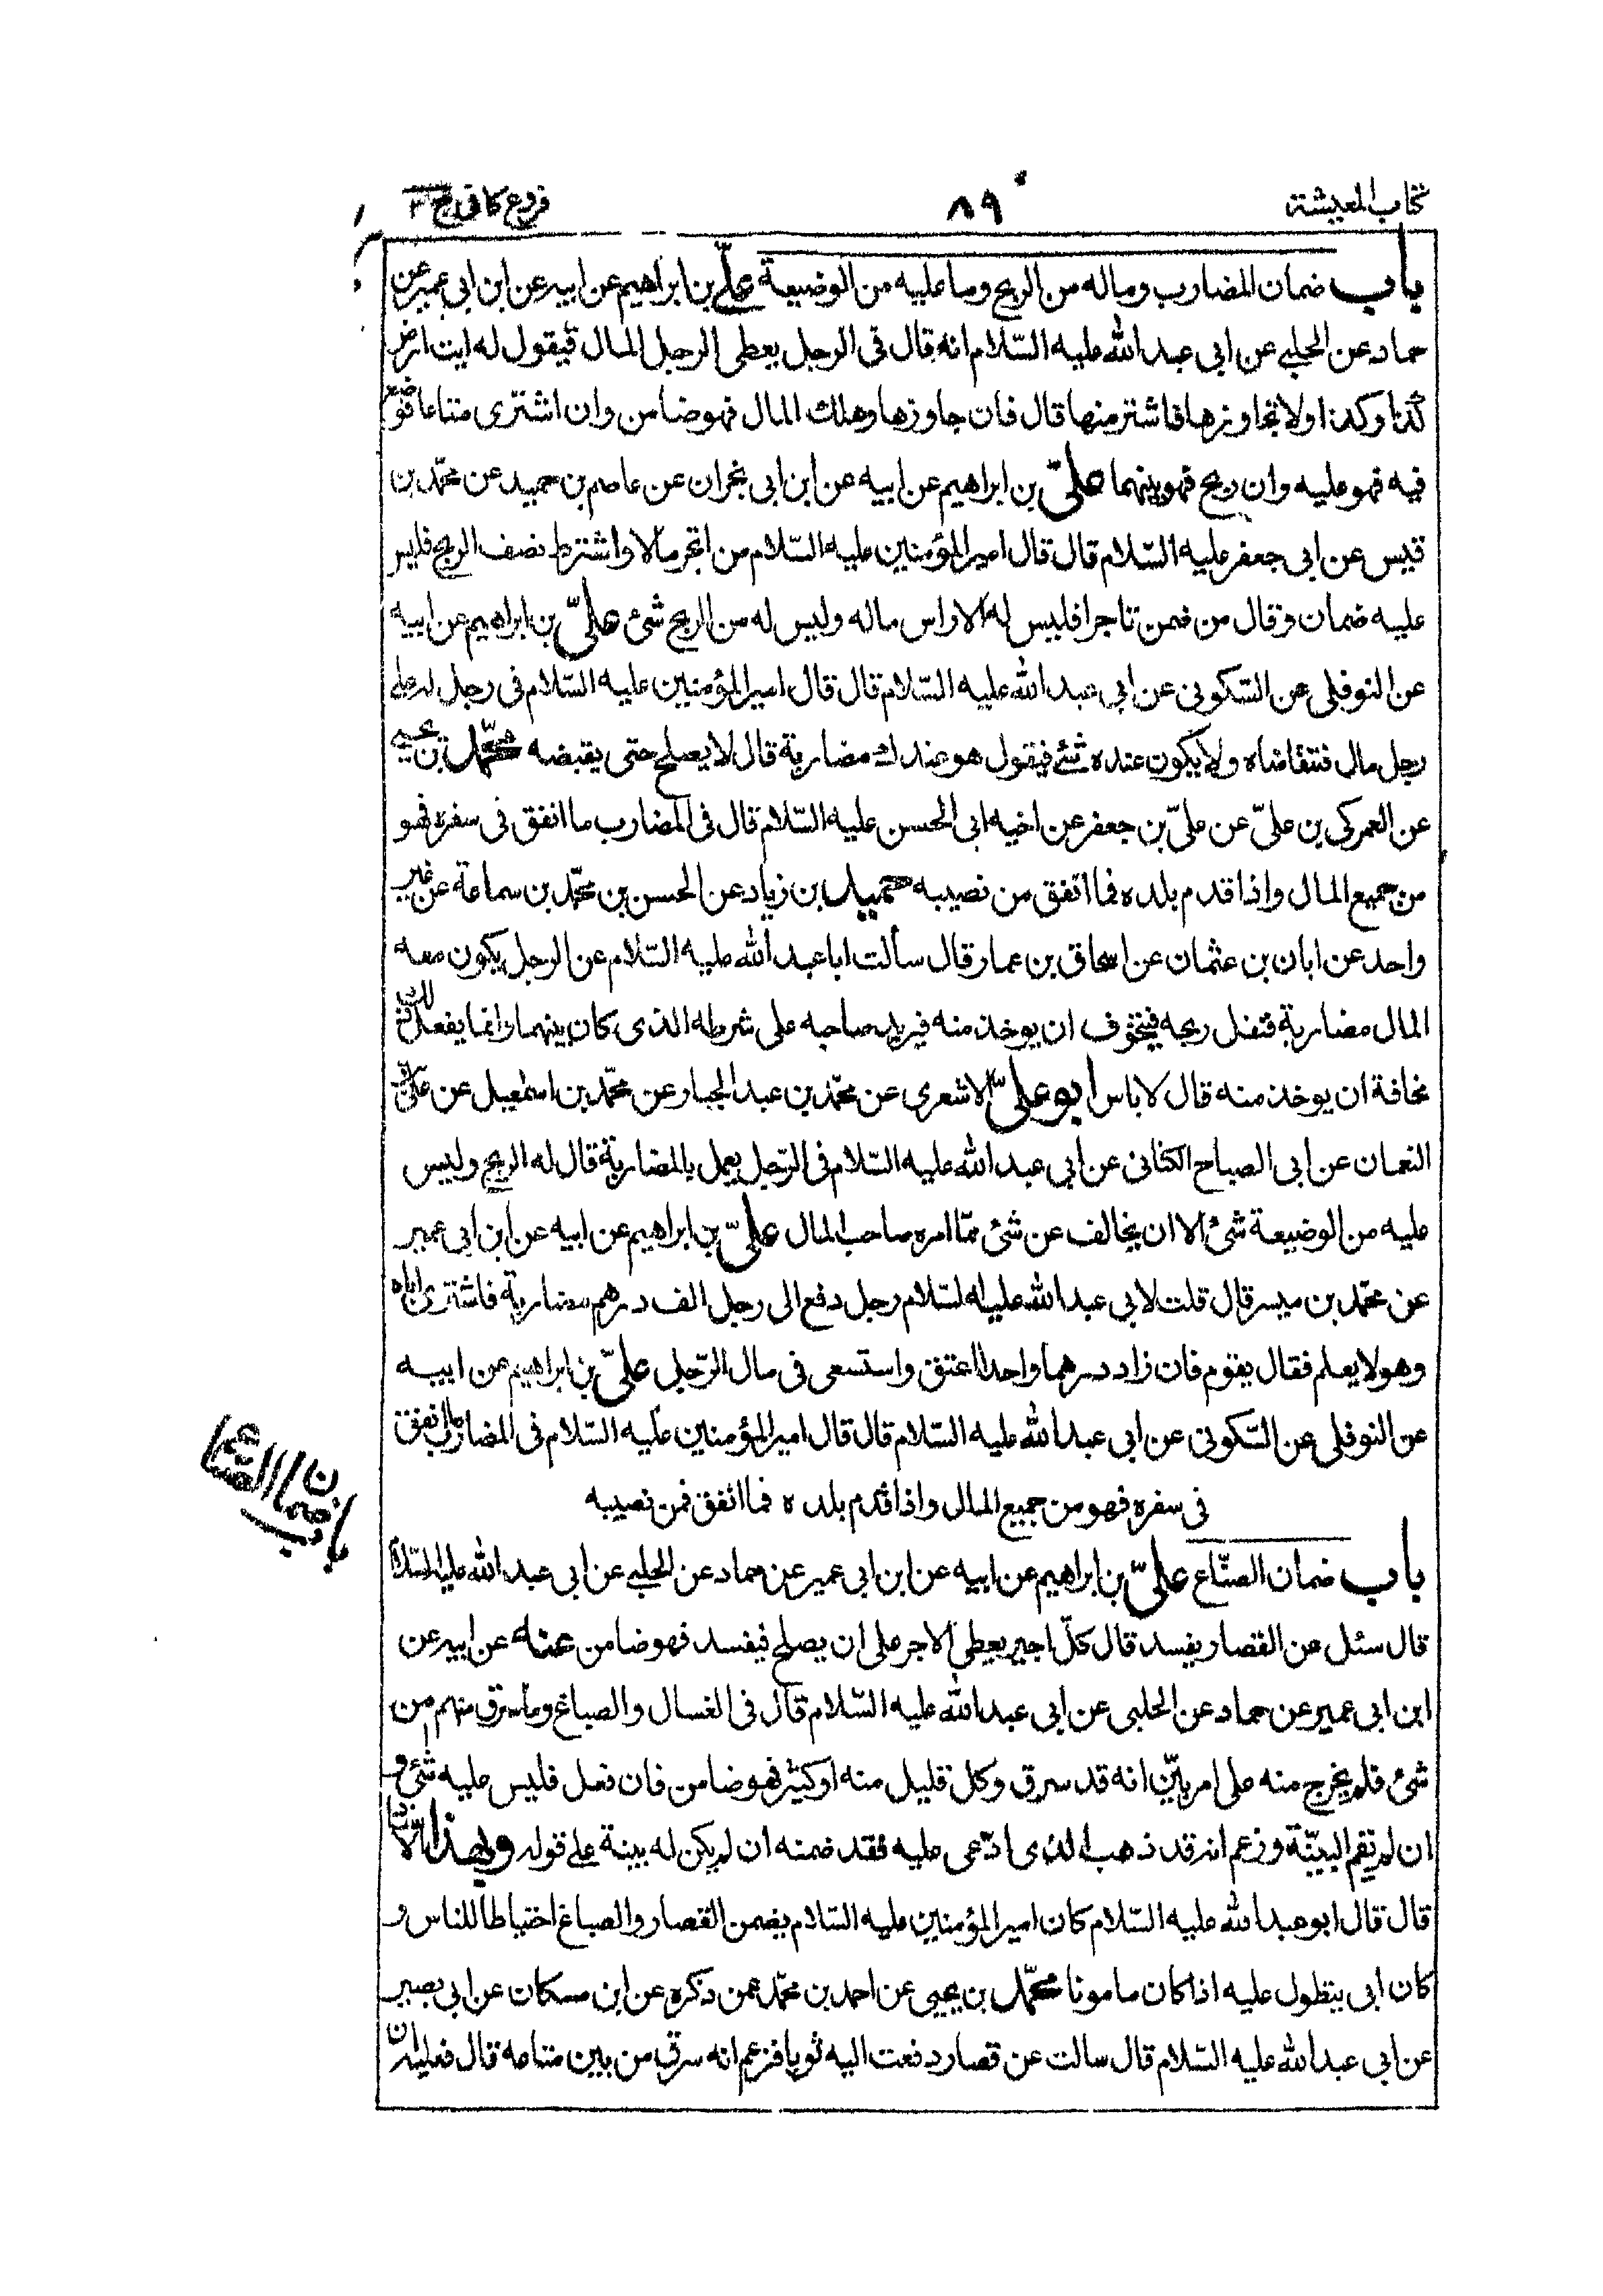 كتاب المعيشة
٨٩
فروع كافى ج ٣
باب ضمان المضارب وماله من الربح وما عليه من الوضيعة علىّ بن ابراهيم عن ابيه عن ابن ابى عمير عن
حماد عن الحلبى عن ابى عبد الله عليه السّلام انه قال فى الرجل يعطى الرجل المال فيقول له ايت ارض
كذا وكذا ولا تجاوزها فاشتر منها قال فان جاوزها وهلك المال فهو ضامن وان اشترى متاعا فوضع
فيه فهو عليه وان ربح فهو بينهما علىّ بن ابراهيم عن ابيه عن ابن ابى نجران عن عاصم بن حميد عن محمّد بن
قيس عن ابى جعفر عليه السّلام قال قال امير المؤمنين عليه السّلام من اتجر مالا واشترط نصف الربح فليس
عليه ضمان وقال من ضمن تاجرا فليس له الا راس ماله وليس له من الربح شئ علىّ بن ابراهيم عن ابيه
عن النوفلى عن السّكونى عن ابى عبد الله عليه السّلام قال قال امير المؤمنين عليه السّلام فى رجل له على
رجل مال فتقاضاه ولا يكون عنده شئ فيقول هو عندك مضاربة قال لا يصلح حتى يقبضه محمّد بن يحيى
عن العمركى بن علىّ عن علىّ بن جعفر عن اخيه ابى الحسن عليه السّلام قال فى المضارب ما انفق فى سفره فهو
من جميع المال واذا قدم بلده فما انفق من نصيبه حميد بن زياد عن الحسن بن محمّد بن سماعة عن غير
واحد عن ابان بن عثمان عن اسحاق بن عمار قال سألت ابا عبد الله عليه السّلام عن الرجل يكون معه
المال مضاربة فتقل ربحه فيتخوف ان يوخذ منه فيزيد صاحبه على شرطه الذى كان بينهما وانما يفعل ذلك
مخافة ان يوخذ منه قال لا باس ابو علىّ الاشعرى عن محمّد بن عبد الجبار عن محمّد بن اسمعيل عن علىّ بن
النعمان عن ابى الصباح الكنانى عن ابى عبد الله عليه السّلام فى الرّجل يعمل بالمضاربة قال له الربح وليس
عليه من الوضيعة شئ الا ان يخالف عن شئ ممّا امره صاحب المال علىّ بن ابراهيم عن ابيه عن ابن ابى عمير
عن محمّد بن ميسر قال قلت لابى عبد الله عليه السّلام رجل دفع الى رجل الف درهم مضاربة فاشترى اباه
وهو لا يعلم فقال يقوم فان زاد درهما واحدا اعتق واستسعى فى مال الرّجل علىّ بن ابراهيم عن ابيه
عن النوفلى عن السّكونى عن ابى عبد الله عليه السّلام قال قال امير المؤمنين عليه السّلام فى المضارب ما انفق
فى سفره فهو من جميع المال واذا قدم بلده فما انفق فمن نصيبه
باب ضمان الصنّاع
باب ضمان الصنّاع علىّ بن ابراهيم عن ابيه عن ابن ابى عمير عن حماد عن الحلبى عن ابى عبد الله عليه السّلام
قال سئل عن القصار يفسد قال كلّ اجير يعطى الاجر على ان يصلح فيفسد فهو ضامن عنه عن ابيه عن
ابن ابى عمير عن حماد عن الحلبى عن ابى عبد الله عليه السّلام قال فى الغسال والصباغ وما سرق منهم من
شئ فلم يخرج منه على امر بيّن انه قد سرق وكل قليل منه او كثير فهو ضامن فان فعل فليس عليه شئ و
ان لم يقم البيّنة وزعم انه قد ذهب الذى ادّعى عليه فقد ضمنه ان لم يكن له بينة على قوله وبهذا الاسناد
قال قال ابو عبد الله عليه السّلام كان امير المؤمنين عليه السّلام يضمن القصار والصباغ احتياطا للناس و
كان ابى يتطول عليه اذا كان مامونا محمّد بن يحيى عن احمد بن محمّد عمن ذكره عن ابن مسكان عن ابى بصير
عن ابى عبد الله عليه السّلام قال سالت عن قصار دفعت اليه ثوبا فزعم انه سرق من بين متاعه قال فعليه ان